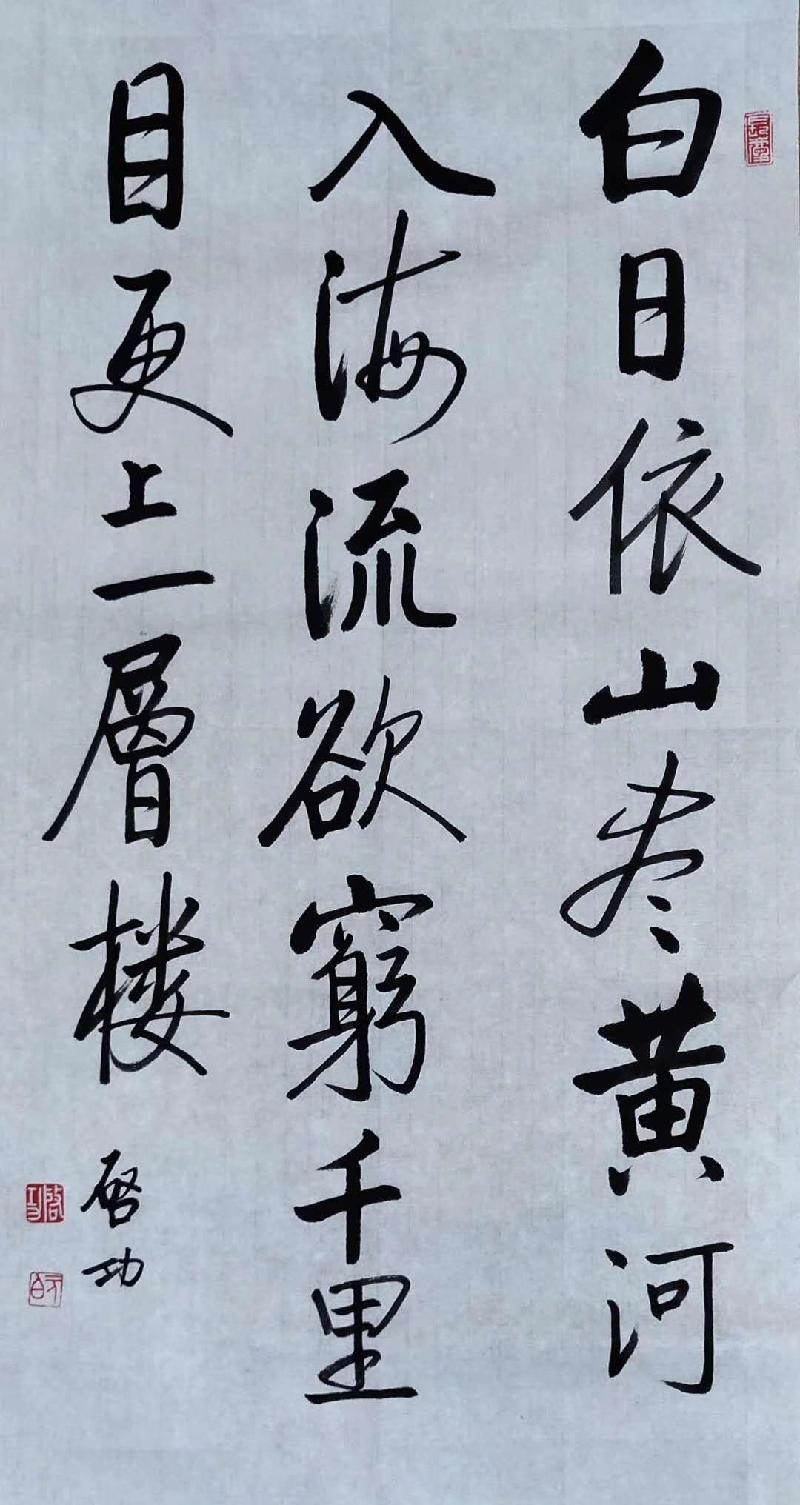 白日依山尽黄河
入海流欲窮千里
目更上一層楼
啓功
啓功